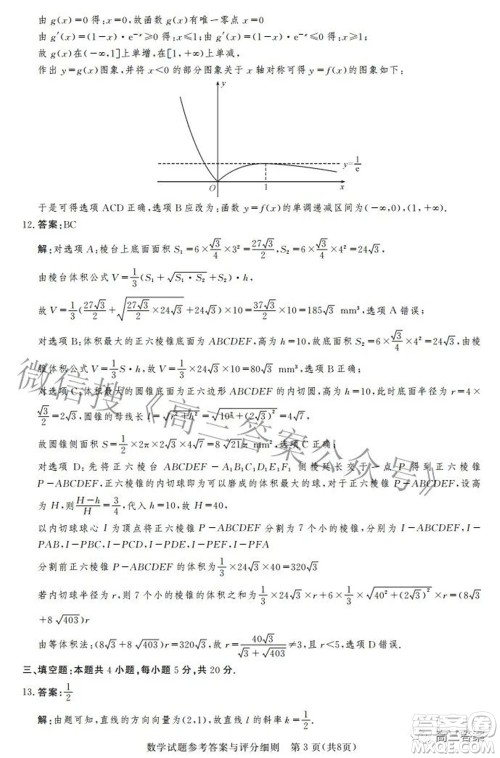 由 g(x)=0 得:x=0,故函数 g(x)有唯一零点 x=0
由 g′(x)=(1-x)·e⁻ˣ≥0 得:x≤1;由 g′(x)=(1-x)·e⁻ˣ≤0 得:x≥1;
故 g(x)在(-∞,1]上单增,在[1,+∞)上单减.
作出 y=g(x)图象,并将 x<0 的部分图象关于 x 轴对称可得 y=f(x)的图象如下:
y
y=1/e
O 1 x
于是可得选项 ACD 正确,选项 B 应改为:函数 y=f(x)的单调递减区间为(-∞,0),(1,+∞).
12.答案:BC
解:对选项 A:棱台上底面面积 S₁=6×√3/4×3²=27√3/2,S₂=6×√3/4×4²=24√3,
由棱台体积公式 V=1/3(S₁+√(S₁·S₂)+S₂)·h
故 V=1/3(27√3/2+√(27√3/2×24√3)+24√3)×10=1/3×111√3/2×10=185√3 mm³,选项 A 错误;
对选项 B:体积最大的正六棱锥底面为正六边形 ABCDEF,高为 h=10,故底面面积 S=6×√3/4×4²=24√3,由棱
锥体积公式 V=1/3S·h,故 V=1/3×24√3×10=80√3 mm³,选项 B 正确;
对选项 C:体积最大的圆锥底面为正六边形 ABCDEF 的内切圆,高为 h=10,此时底面半径为 r=4×
√3/2=2√3,圆锥的母线长 l=√(r²+h²)=√(10²+(2√3)²)=4√7
故圆锥侧面面积 S=1/2×2π×2√3×4√7=8√21π mm²,选项 C 正确;
对选项 D:先将正六棱台 ABCDEF-A₁B₁C₁D₁E₁F₁ 侧棱延长交于一点 P,得到正六棱锥
P-ABCDEF,则正六棱锥的内切球体积即为可以磨成的球体体积最大值.对于正六棱锥 P-ABCDEF,设高
为 H,则(H-h)/H=3/4,代入 h=10,故 H=40.
以内切球球心 I 为顶点,可将正六棱锥 P-ABCDEF 分割为 7 个小的棱锥:I-ABCDEF,I-
PAB,I-PBC,I-PCD,I-PDE,I-PEF,I-PFA
分割前正六棱锥 P-ABCDEF 的体积为:1/3×24√3×40=320√3
若内切球半径为 r,则七个小棱锥的体积为:1/3×24√3×r+6×1/3×1/2×4×√(40²+(2√3)²)×r=(8√3
+8√403)r
由等体积法:(8√3+8√403)r=320√3,故 r=40√3/(√3+√403)<3<h/2=5,故选项 D 错误.
三、填空题:本题共 4 小题,每小题 5 分,共 20 分.
13.答案:1/2
解:由题可知,直线的方向向量为(1,1),故与直线垂直的
数学试题参考答案与评分细则 第 3 页(共8页)
微信搜《高三答案公众号》
高三答案